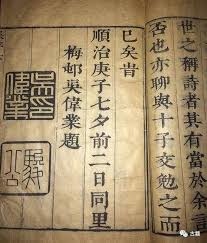 世之稱詩者其有當於余言
否也亦聊與十子交勉之而
已矣旹
順治庚子七夕前二日同里
梅邨吳偉業題
吳印偉業
駿公
古籍